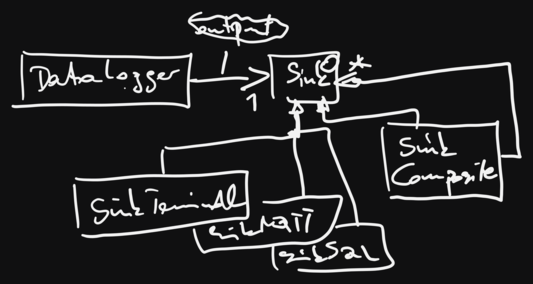 output
DataLogger
Sink
*
1
Sink
Composite
SinkTerminal
SinkMQTT
SinkSQL